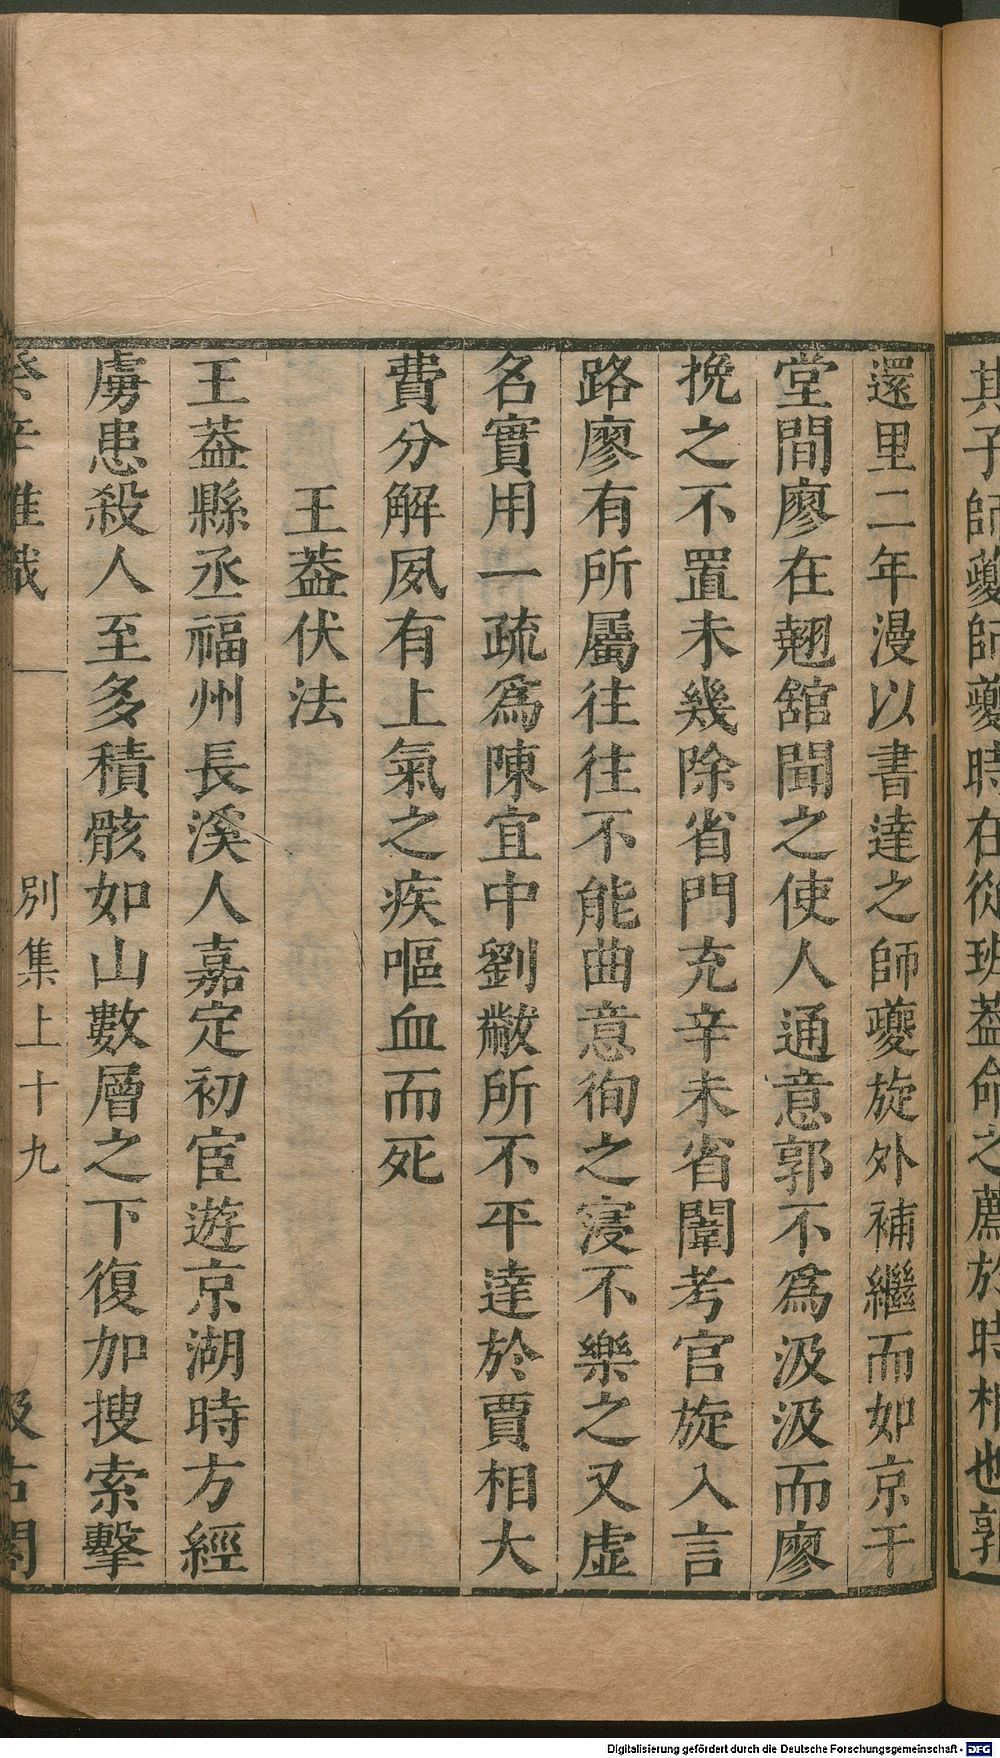 其子師夔師夔時在從班葢命之薦於時相也郭
還里二年漫以書達之師夔旋外補繼而如京干
堂間廖在翹舘聞之使人通意郭不爲汲汲而廖
挽之不置未幾除省門充辛未省闈考官旋入言
路廖有所屬往往不能曲意徇之寖不樂之又虛
名實用一疏爲陳宜中劉黻所不平達於賈相大
費分解夙有上氣之疾嘔血而死
王葢伏法
王葢縣丞福州長溪人嘉定初宦遊京湖時方經
虜患殺人至多積骸如山數層之下復加搜索擊
癸辛雜識 別集上十九 汲古閣
Digitalisierung gefördert durch die Deutsche Forschungsgemeinschaft - DFG